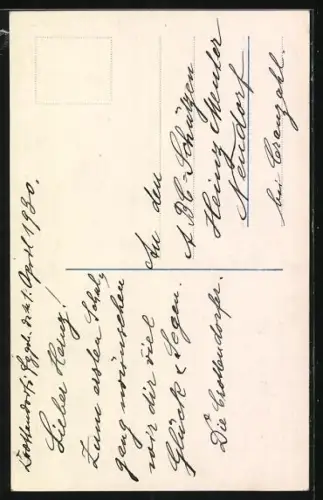 Crottendorf i. Erzgeb. d. 1. April 1930.
Lieber Heinz!
Zum ersten Schul-
gang wünschen
wir dir viel
Glück & Segen.
Die Crottendorfer.
An den
ABC-Schützen
Heinz Meuter
Neudorf
bei Cranzahl.